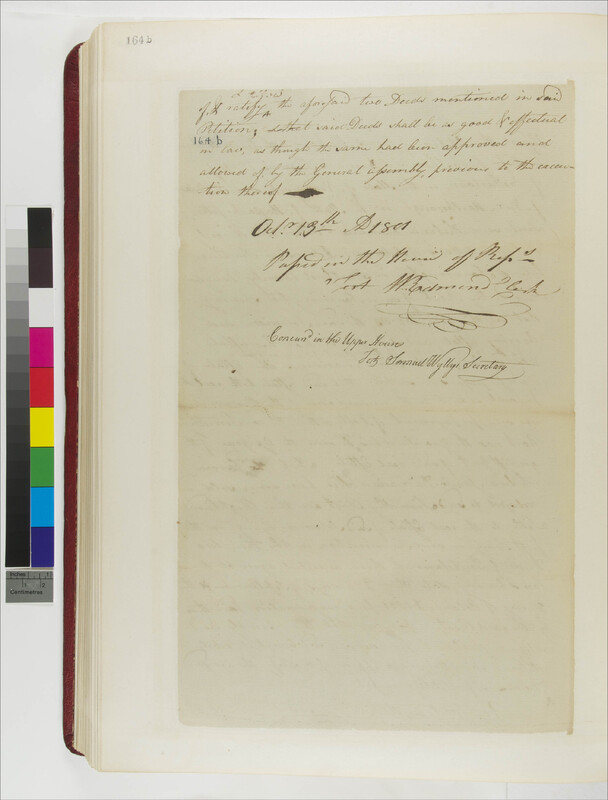 164b
ratify the aforesaid two Deeds mentioned in said
Petition; so that said Deeds shall be as good & effectual
164 b
in law, as though the same had been approved and
allowed of by the General Assembly, previous to the execu-
tion thereof
Octr. 13th AD 1801
Passed in the House of Reps.
Test Wm Edmond Clerk
Concurd in the Upper House
Test Samuel Wyllys Secretary
Inches
1 2
Centimetres